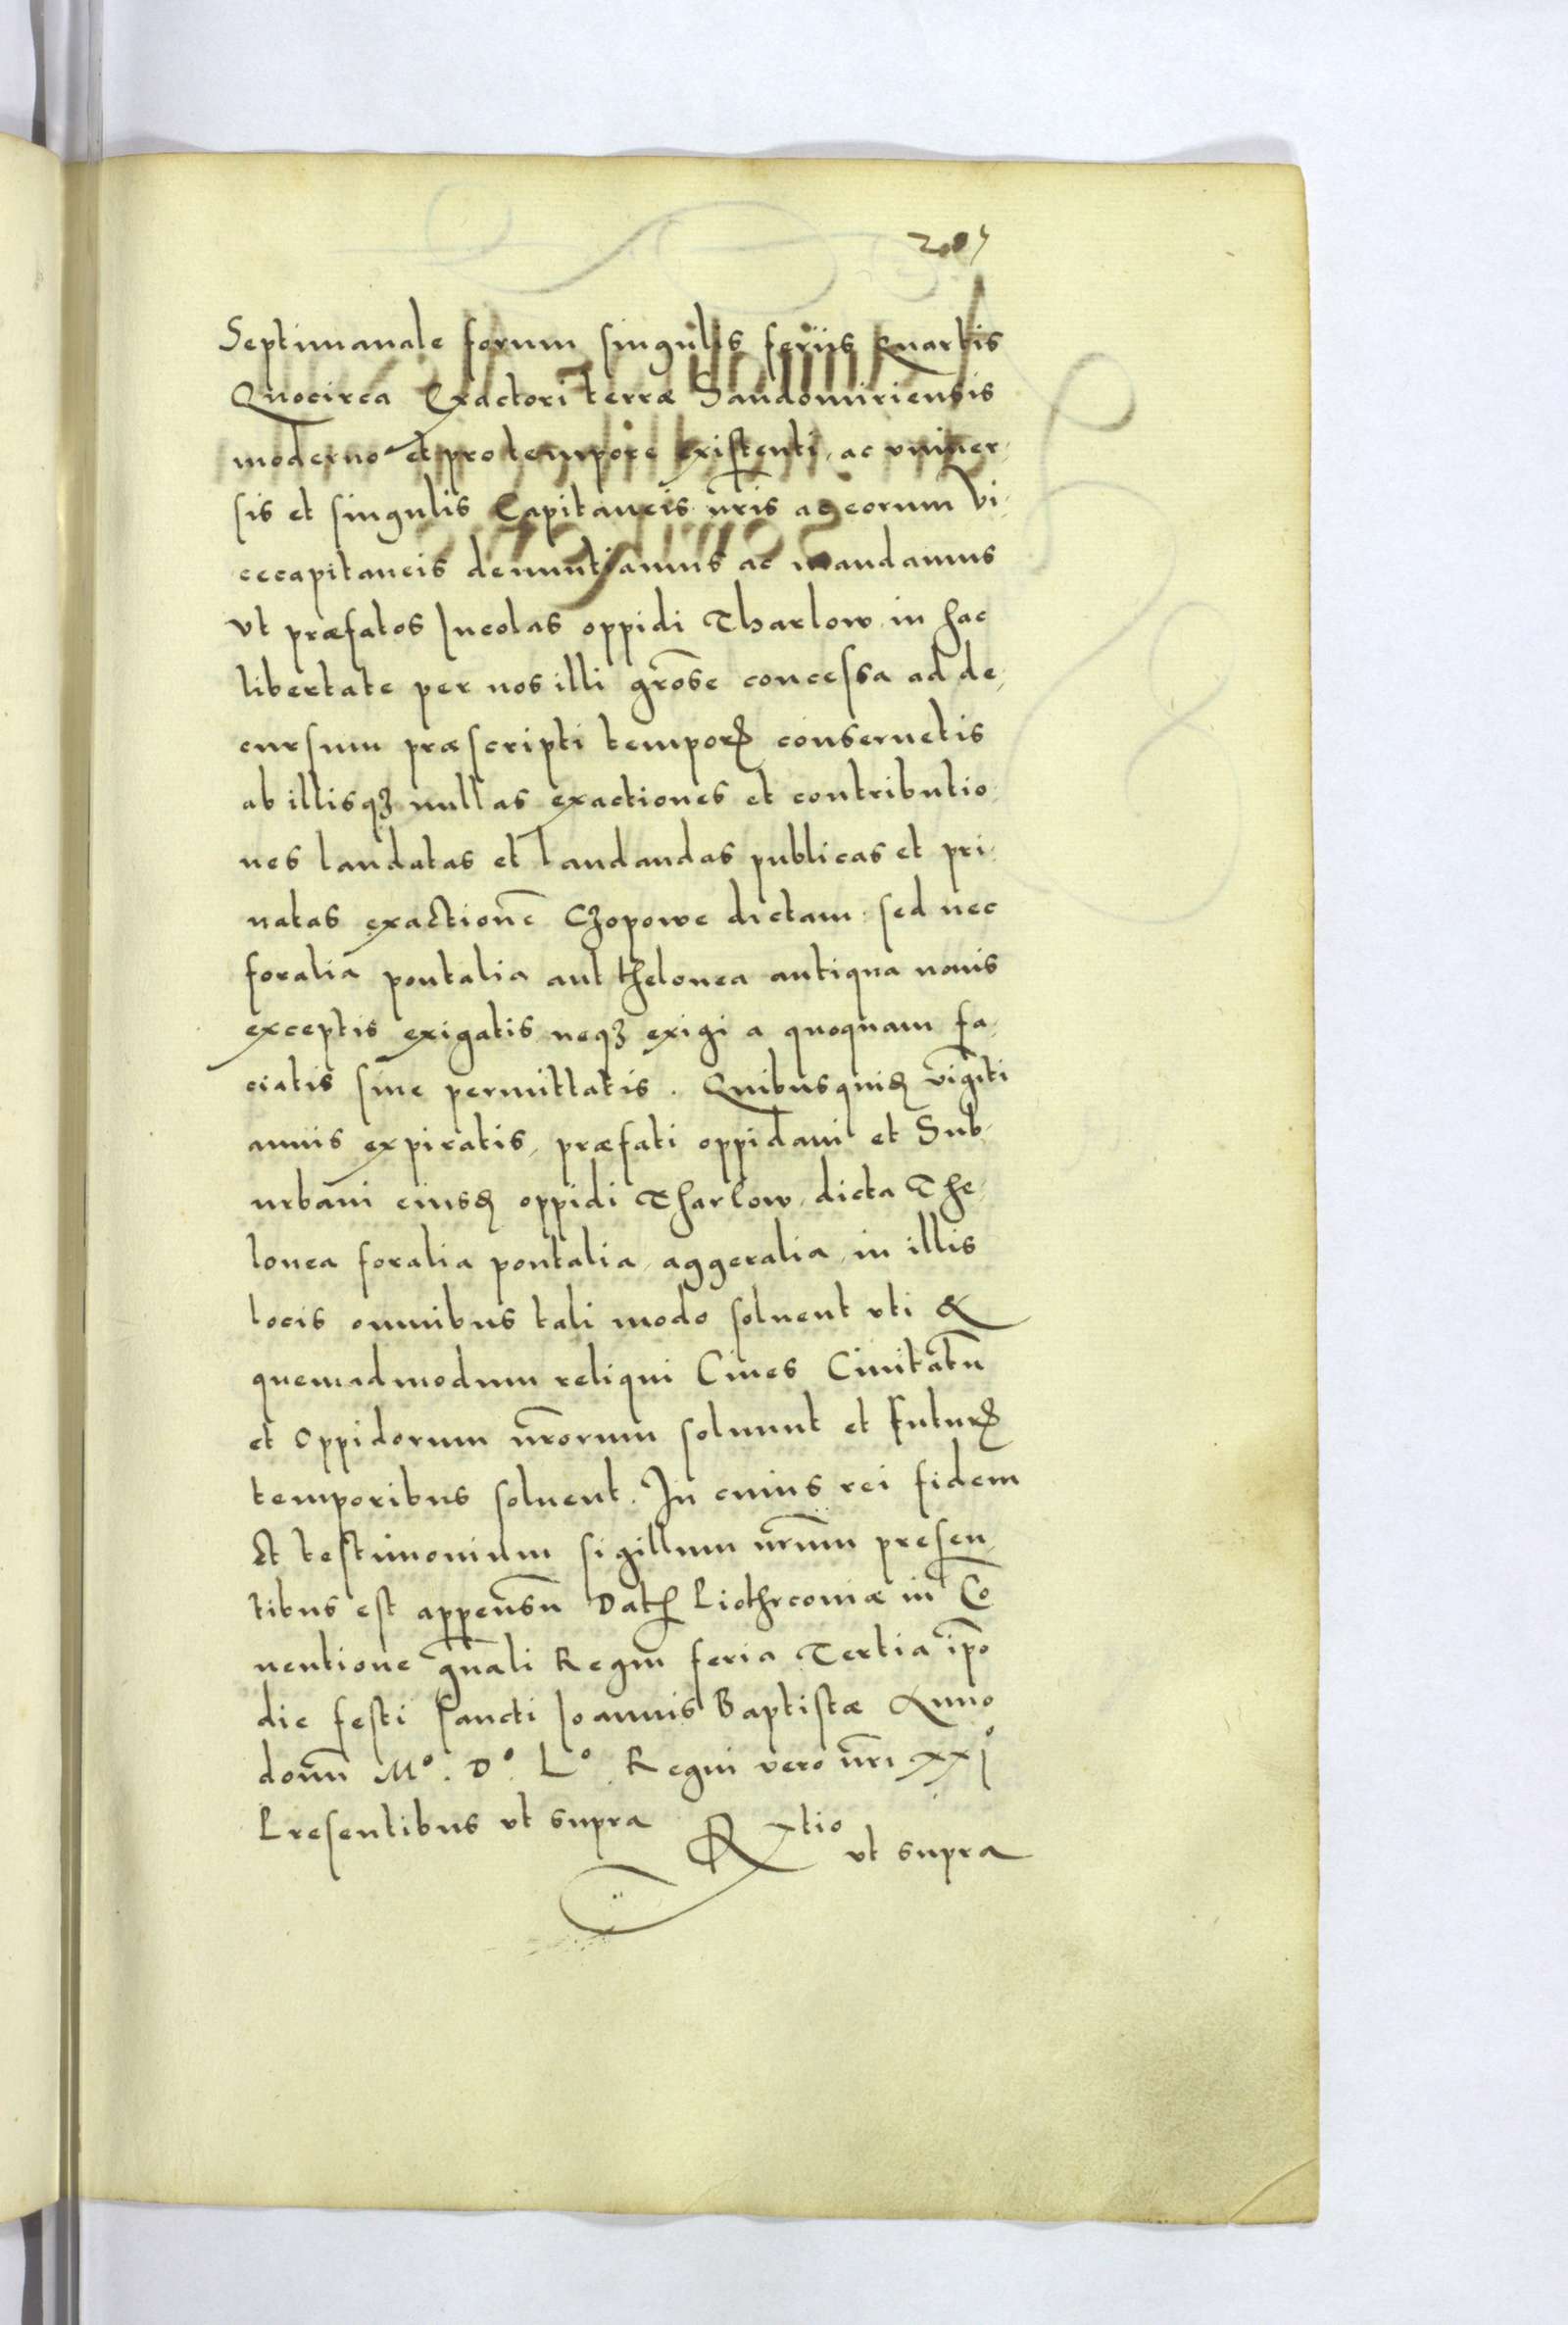 Septimanale forum singulis feriis Quartis
Quocirca Exactori terræ Sandomiriensis
moderno et pro tempore existenti, ac vniuer,
sis et singulis Capitaneis nr̃is ac eorum Vi,
cecapitaneis denuntiamus ac mandamus
Vt præfatos Incolas oppidi Tharlow in hac
libertate per nos illi gr̃ose concessa ad de,
cursum præscripti temporꝭ conseruetis
ab illisqꝫ nullas exactiones et contributio,
nes laudatas et laudandas publicas et pri,
uatas exactionẽ Czopowe dictam: sed nec
foralia pontalia aut thelonea antiqua nouis
exceptis exigatis neqꝫ exigi a quoquam fa,
ciatis siue permittatis. Quibusquidꝫ vigĩti
annis expiratis, præfati oppidani et Sub,
urbani eiusdꝫ oppidi Tharlow, dicta The,
lonea foralia pontalia, aggeralia, in illis
locis omnibus tali modo soluent vti &
quemadmodum reliqui Ciues Ciuitatũ
et Oppidorum nr̃orum soluunt et Futurꝭ
temporibus soluent. In cuius rei fidem
Et testimonium sigillum nr̃um presen,
tibus est appensũ Datꝭ Piothrcouiæ in Cõ
uentione gñali Regni feria Tertia ip̃o
die festi sancti Joannis Baptistæ Anno
domĩ Mº. Dº. Lº. Regni vero nr̃i xxjº
Presentibus vt supra
Rtio
vt supra